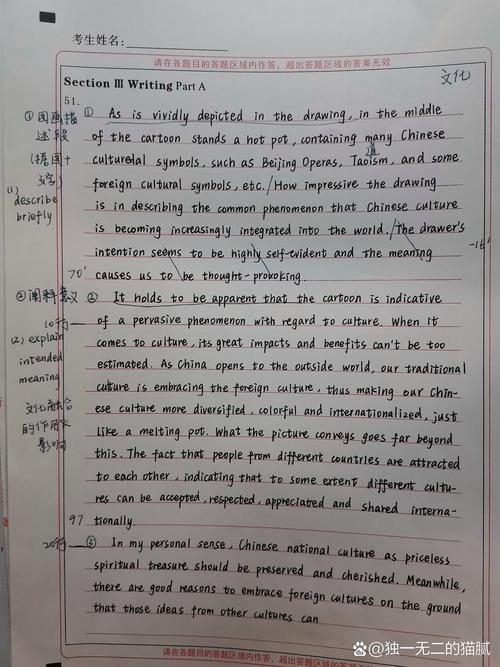 考生姓名:
请在各题目的答题区域内作答，超出答题区域的答案无效
文化
Section III Writing Part A
51.
① 图画描述段
(描图+文字)
(1) describe briefly
① As is vividly depicted in the drawing, in the middle
of the cartoon stands a hot pot, containing many Chinese
道
cultural symbols, such as Beijing Operas, Taoism, and some
foreign cultural symbols, etc./How impressive the drawing
is in describing the common phenomenon that Chinese culture
is becoming increasingly integrated into the world./The drawer's
intention seems to be highly self-evident and the meaning
70'
causes us to be thought-provoking.
② 阐释意义
10行
(2) explain intended meaning
文化融合的作用及影响
② It holds to be apparent that the cartoon is indicative
of a pervasive phenomenon with regard to culture. When it
comes to culture, its great impacts and benefits can't be too
estimated. As China opens to the outside world, our traditional
culture is embracing the foreign culture, thus making our Chin-
ese culture more diversified, colorful and internationalized, just
like a melting pot. What the picture conveys goes far beyond
this. The fact that people from different countries are attracted
to each other, indicating that to some extent different cultu-
res can be accepted, respected, appreciated and shared interna-
97
tionally.
20行
③ In my personal sense, Chinese national culture as priceless
spiritual treasure should be preserved and cherished. Meanwhile,
there are good reasons to embrace foreign cultures on the ground
that those ideas from other cultures can
请在各题目的答题区域内作答，超出答题区域的答案无效
@独一无二的猫腻